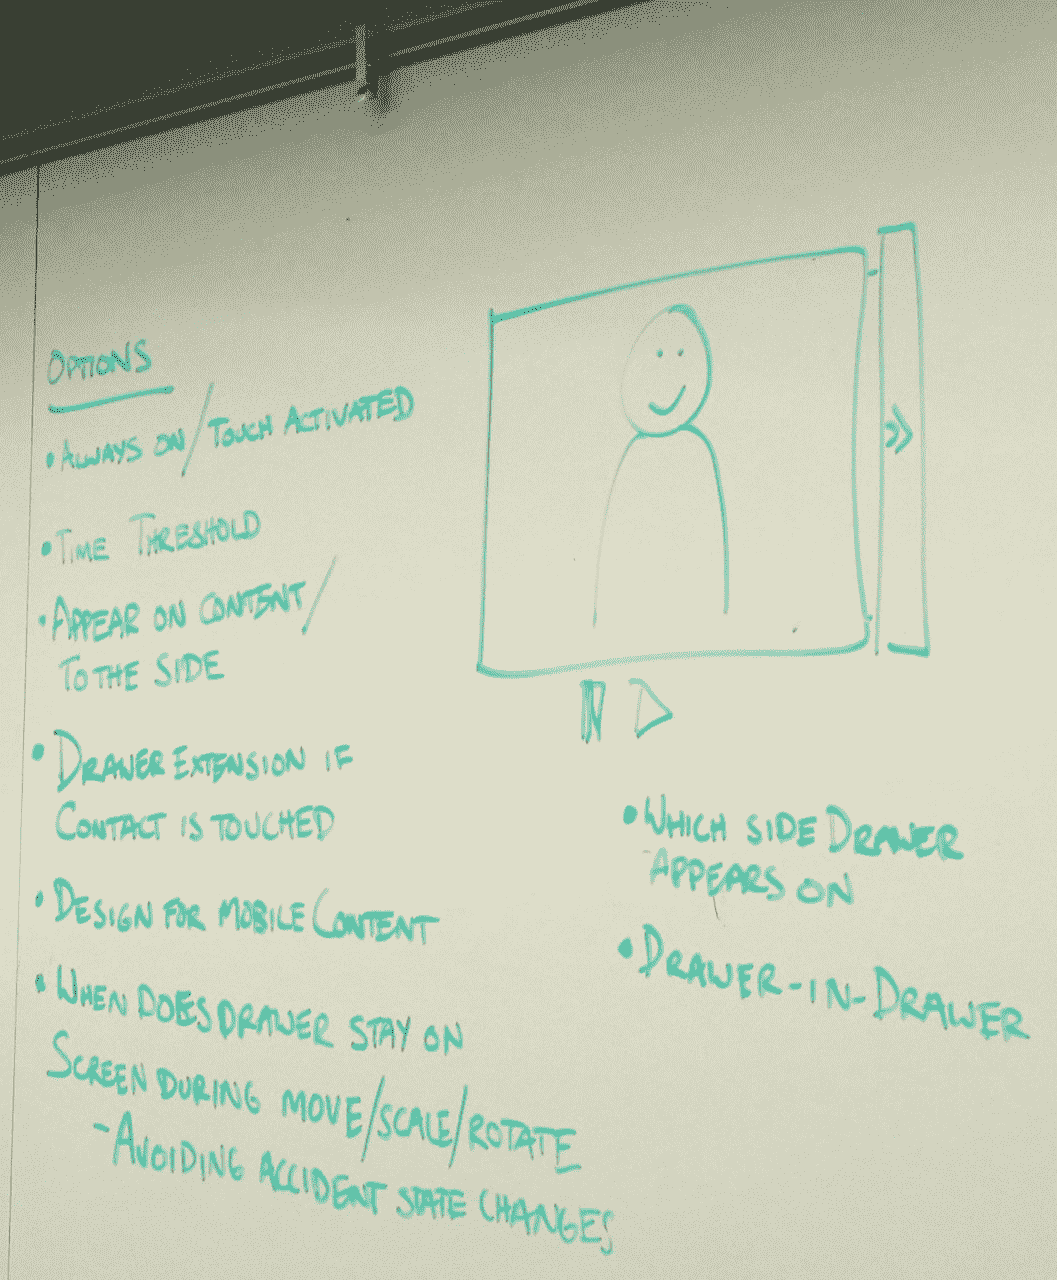 OPTIONS
• ALWAYS ON / TOUCH ACTIVATED
• TIME THRESHOLD
• APPEAR ON CONTENT /
TO THE SIDE
• DRAWER EXTENSION IF
CONTACT IS TOUCHED
• DESIGN FOR MOBILE CONTENT
• WHEN DOES DRAWER STAY ON
SCREEN DURING MOVE/SCALE/ROTATE
- AVOIDING ACCIDENT STATE CHANGES
»
• WHICH SIDE DRAWER
APPEARS ON
• DRAWER-IN-DRAWER